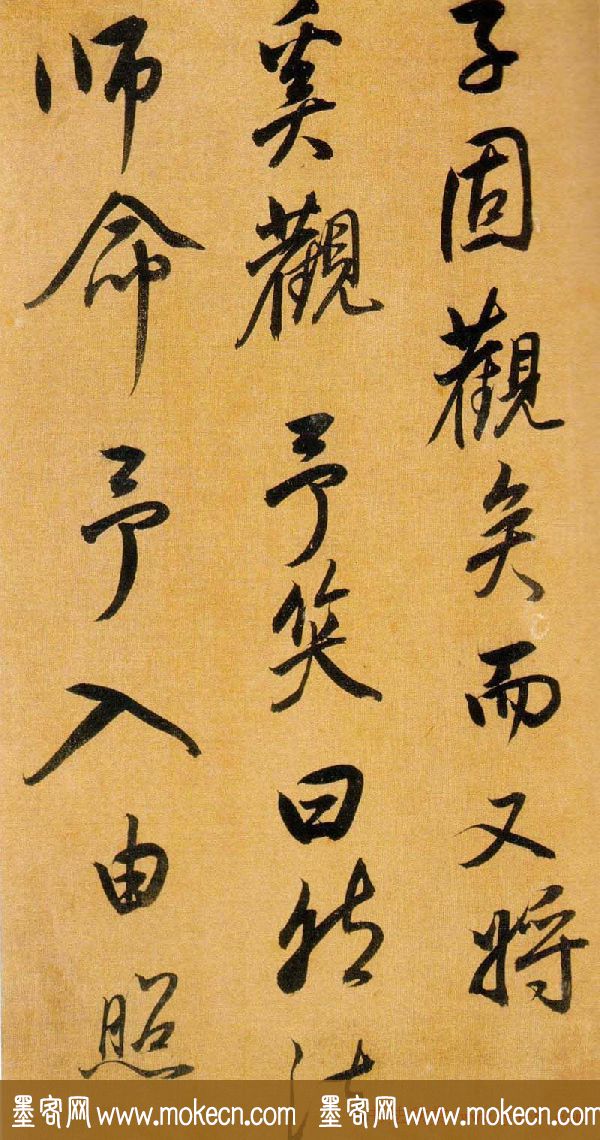 子固觀矣而又將
奚觀予笑曰然
师命予入由照
墨客网 www.mokecn.com 墨客网 www.mokecn.com